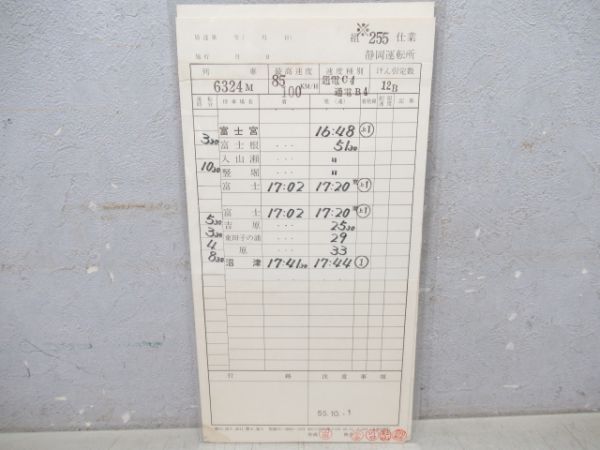 組 ※255 仕業
静岡運転所
施行 月 日
列 車 最高速度 速度種別 けん引定数
6324M 85 100 KM/H 通電C4 通電B4 12B
停車場名 着 発(通) 着発線 記事
富士宮 16·48 上1
3 30 富士根 ··· 51 30
入山瀬 ··· 〃
10 30 竪堀 ··· 〃
富士 17·02 17·20 上1
富士 17·02 17·20 上1
5 30 吉原 ··· 25 30
3 30 東田子の浦 ··· 29
4 原 ··· 33
8 30 沼津 17·41 30 17·44 1
行路 注意事項
55.10.-1